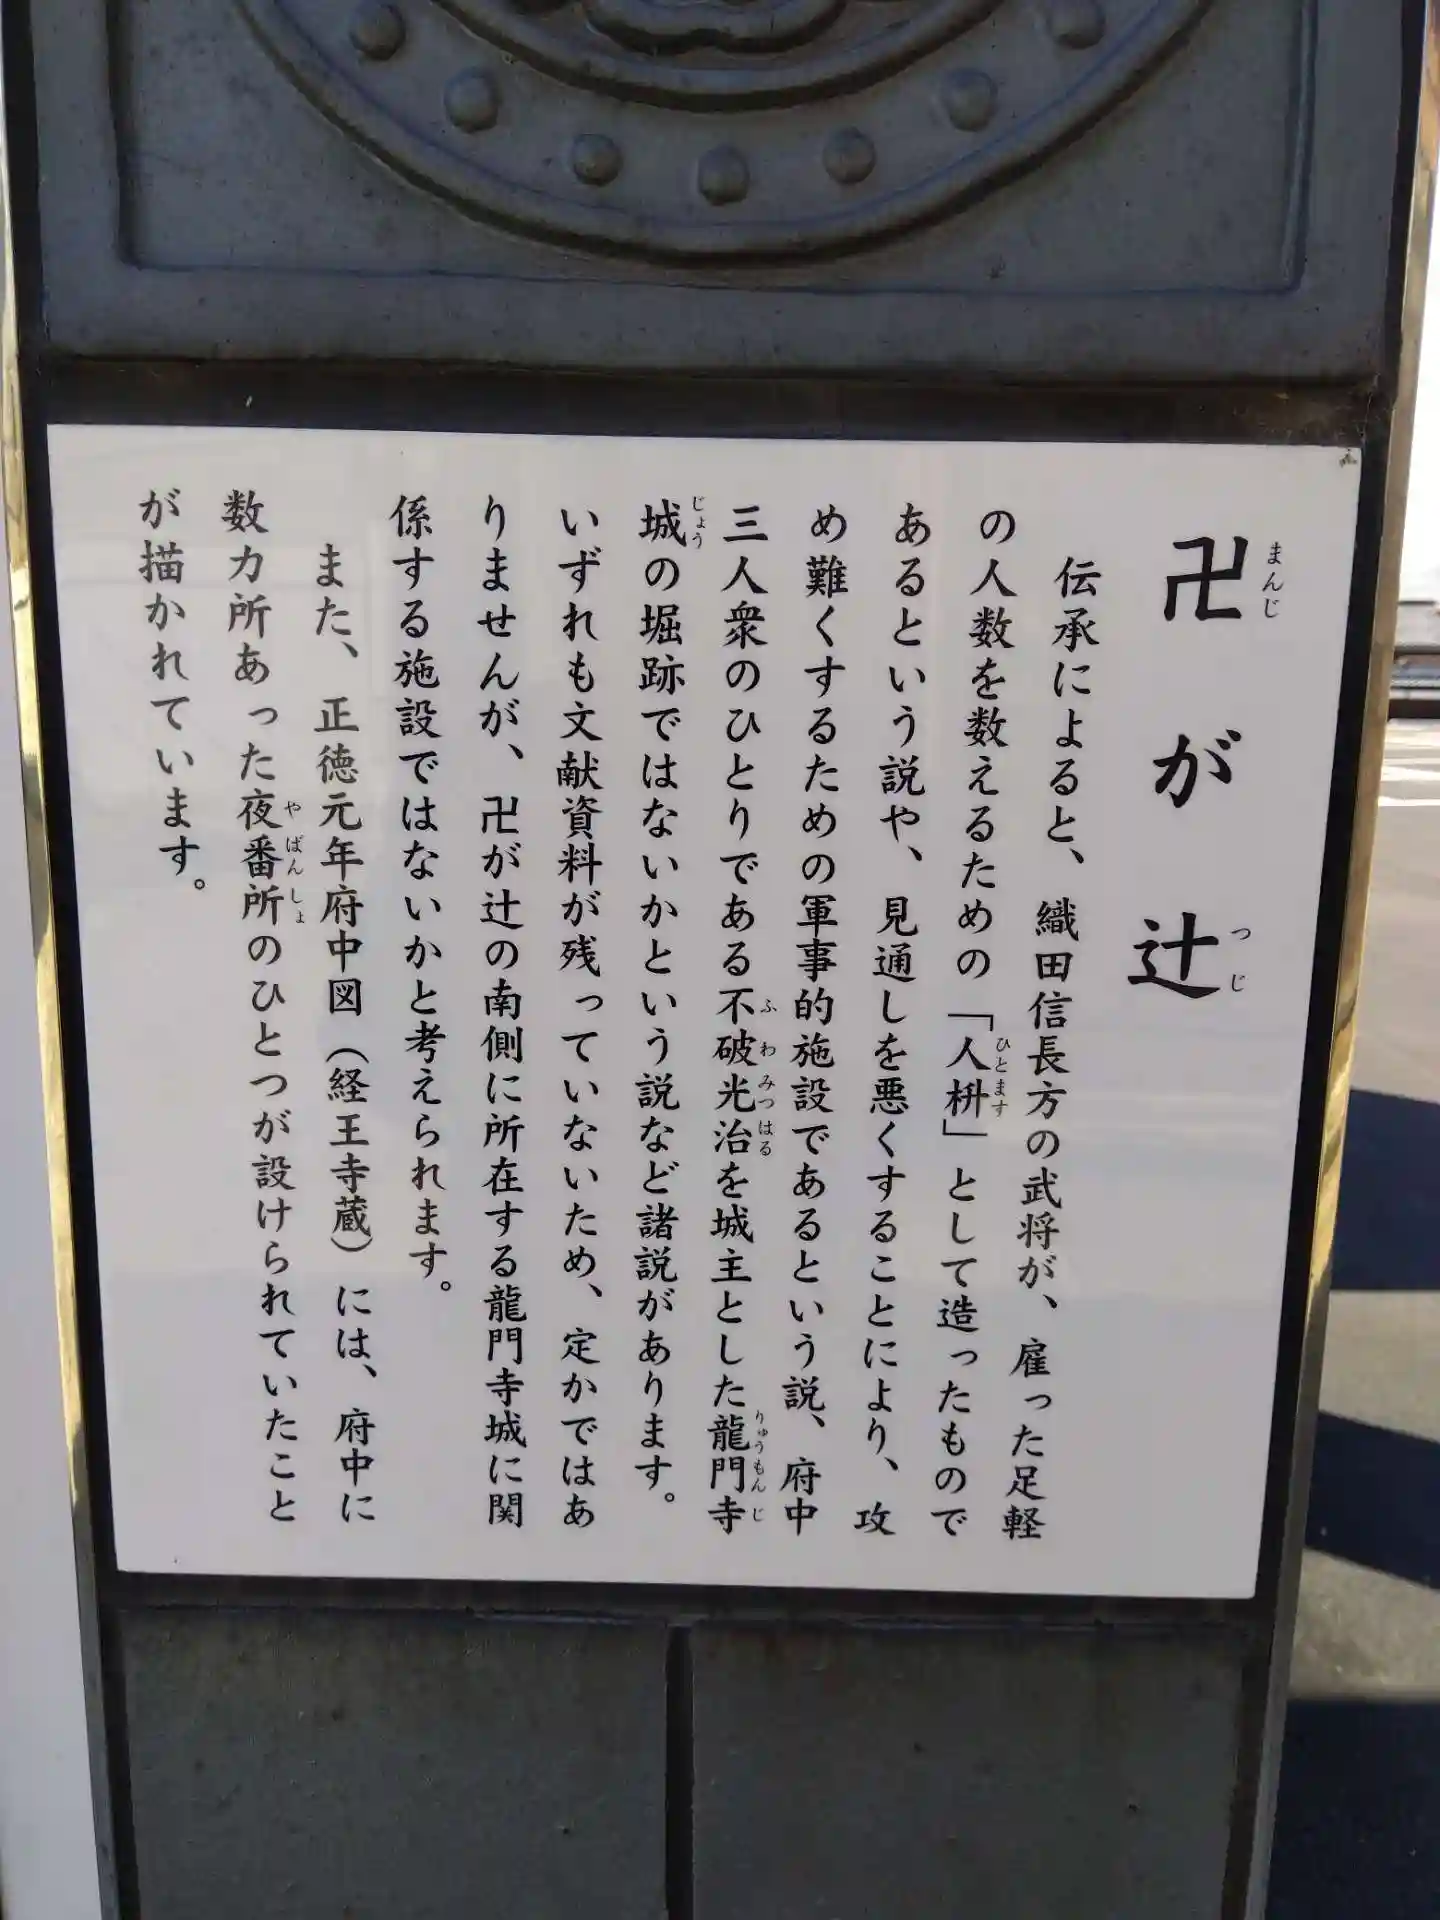 卍が辻
まんじ
つじ
伝承によると、織田信長方の武将が、雇った足軽
の人数を数えるための「人枡」として造ったもので
ひとます
あるという説や、見通しを悪くすることにより、攻
め難くするための軍事的施設であるという説、府中
三人衆のひとりである不破光治を城主とした龍門寺
ふわみつはる
りゅうもんじ
城の堀跡ではないかという説など諸説があります。
じょう
いずれも文献資料が残っていないため、定かではあ
りませんが、卍が辻の南側に所在する龍門寺城に関
係する施設ではないかと考えられます。
また、正徳元年府中図（経王寺蔵）には、府中に
数カ所あった夜番所のひとつが設けられていたこと
やばんしょ
が描かれています。